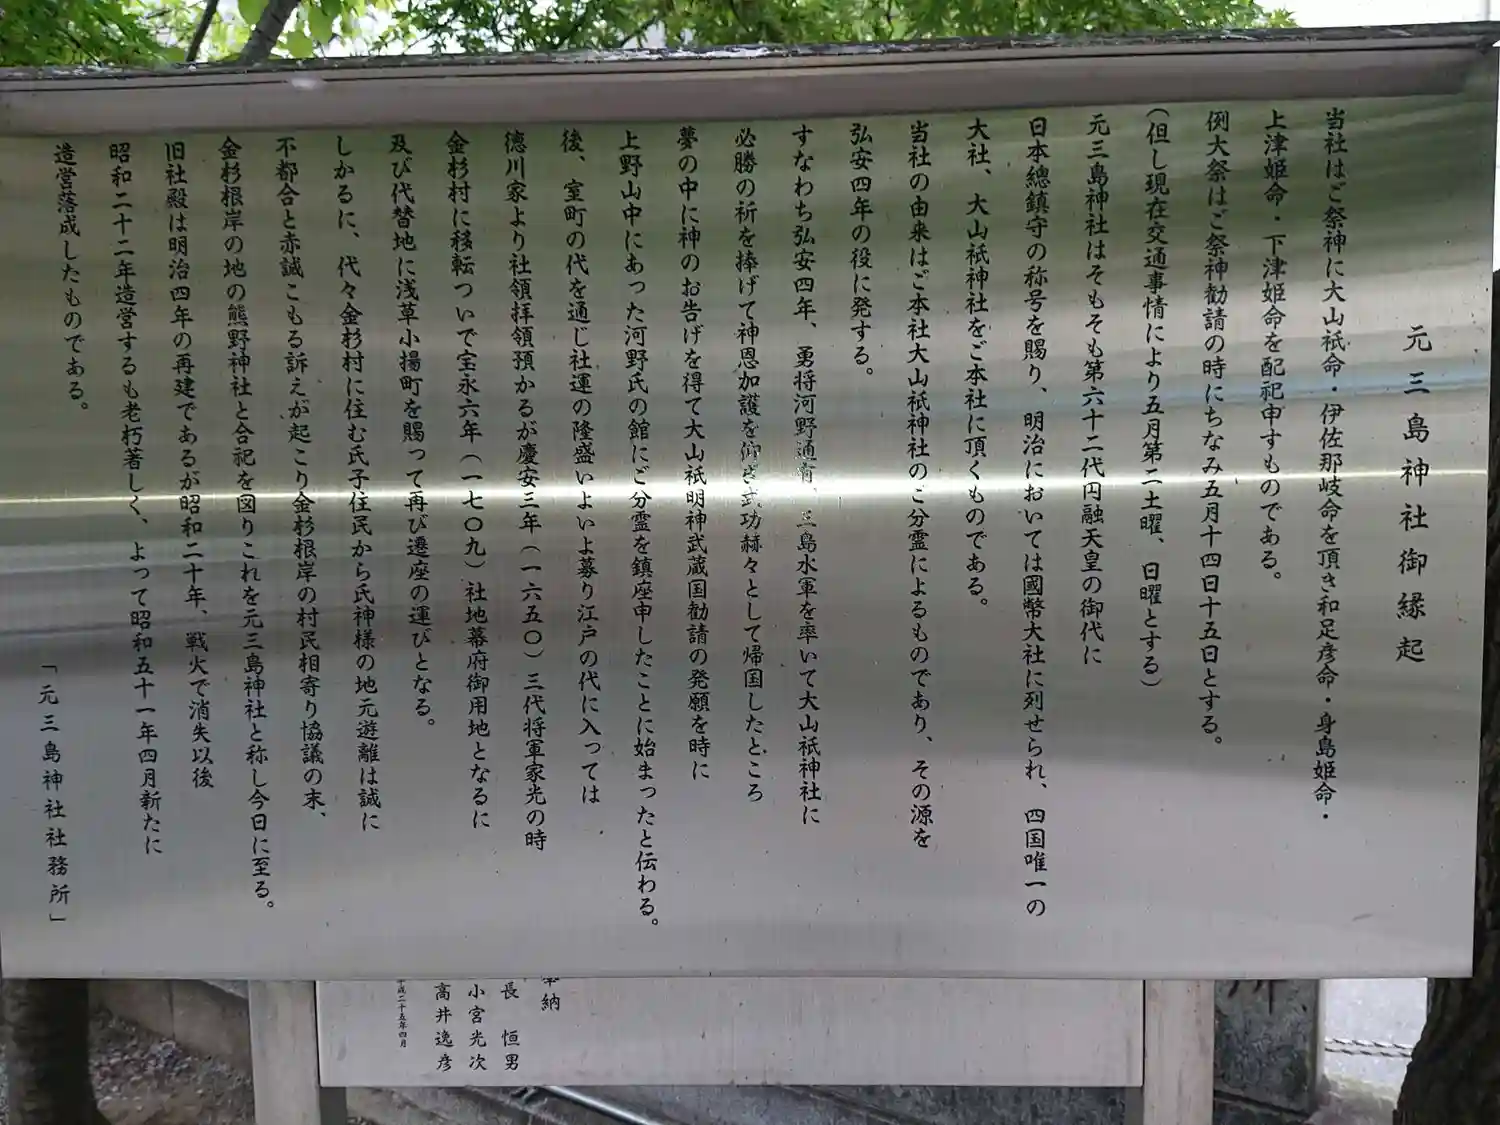 元三島神社御縁起
当社はご祭神に大山祇命・伊佐那岐命を頂き和足彦命・身島姫命・
上津姫命・下津姫命を配祀申すものである。
例大祭はご祭神勧請の時にちなみ五月十四日十五日とする。
（但し現在交通事情により五月第二土曜、日曜とする）
元三島神社はそもそも第六十二代円融天皇の御代に
日本總鎮守の称号を賜り、明治においては國幣大社に列せられ、四国唯一の
大社、大山祇神社をご本社に頂くものである。
当社の由来はご本社大山祇神社のご分霊によるものであり、その源を
弘安四年の役に発する。
すなわち弘安四年、勇将河野通有、三島水軍を率いて大山祇神社に
必勝の祈を捧げて神恩加護を仰ぎ武功赫々として帰国したところ
夢の中に神のお告げを得て大山祇明神武蔵国勧請の発願を時に
上野山中にあった河野氏の館にご分霊を鎮座申したことに始まったと伝わる。
後、室町の代を通じ社運の隆盛いよいよ募り江戸の代に入っては
徳川家より社領拝領預かるが慶安三年（一六五〇）三代将軍家光の時
金杉村に移転ついで宝永六年（一七〇九）社地幕府御用地となるに
及び代替地に浅草小揚町を賜って再び遷座の運びとなる。
しかるに、代々金杉村に住む氏子住民から氏神様の地元遊離は誠に
不都合と赤誠こもる訴えが起こり金杉根岸の村民相寄り協議の末、
金杉根岸の地の熊野神社と合祀を図りこれを元三島神社と称し今日に至る。
旧社殿は明治四年の再建であるが昭和二十年、戦火で消失以後
昭和二十二年造営するも老朽著しく、よって昭和五十一年四月新たに
造営落成したものである。
「元三島神社社務所」
奉納
長 恒男
小宮光次
高井逸彦
平成二十五年四月